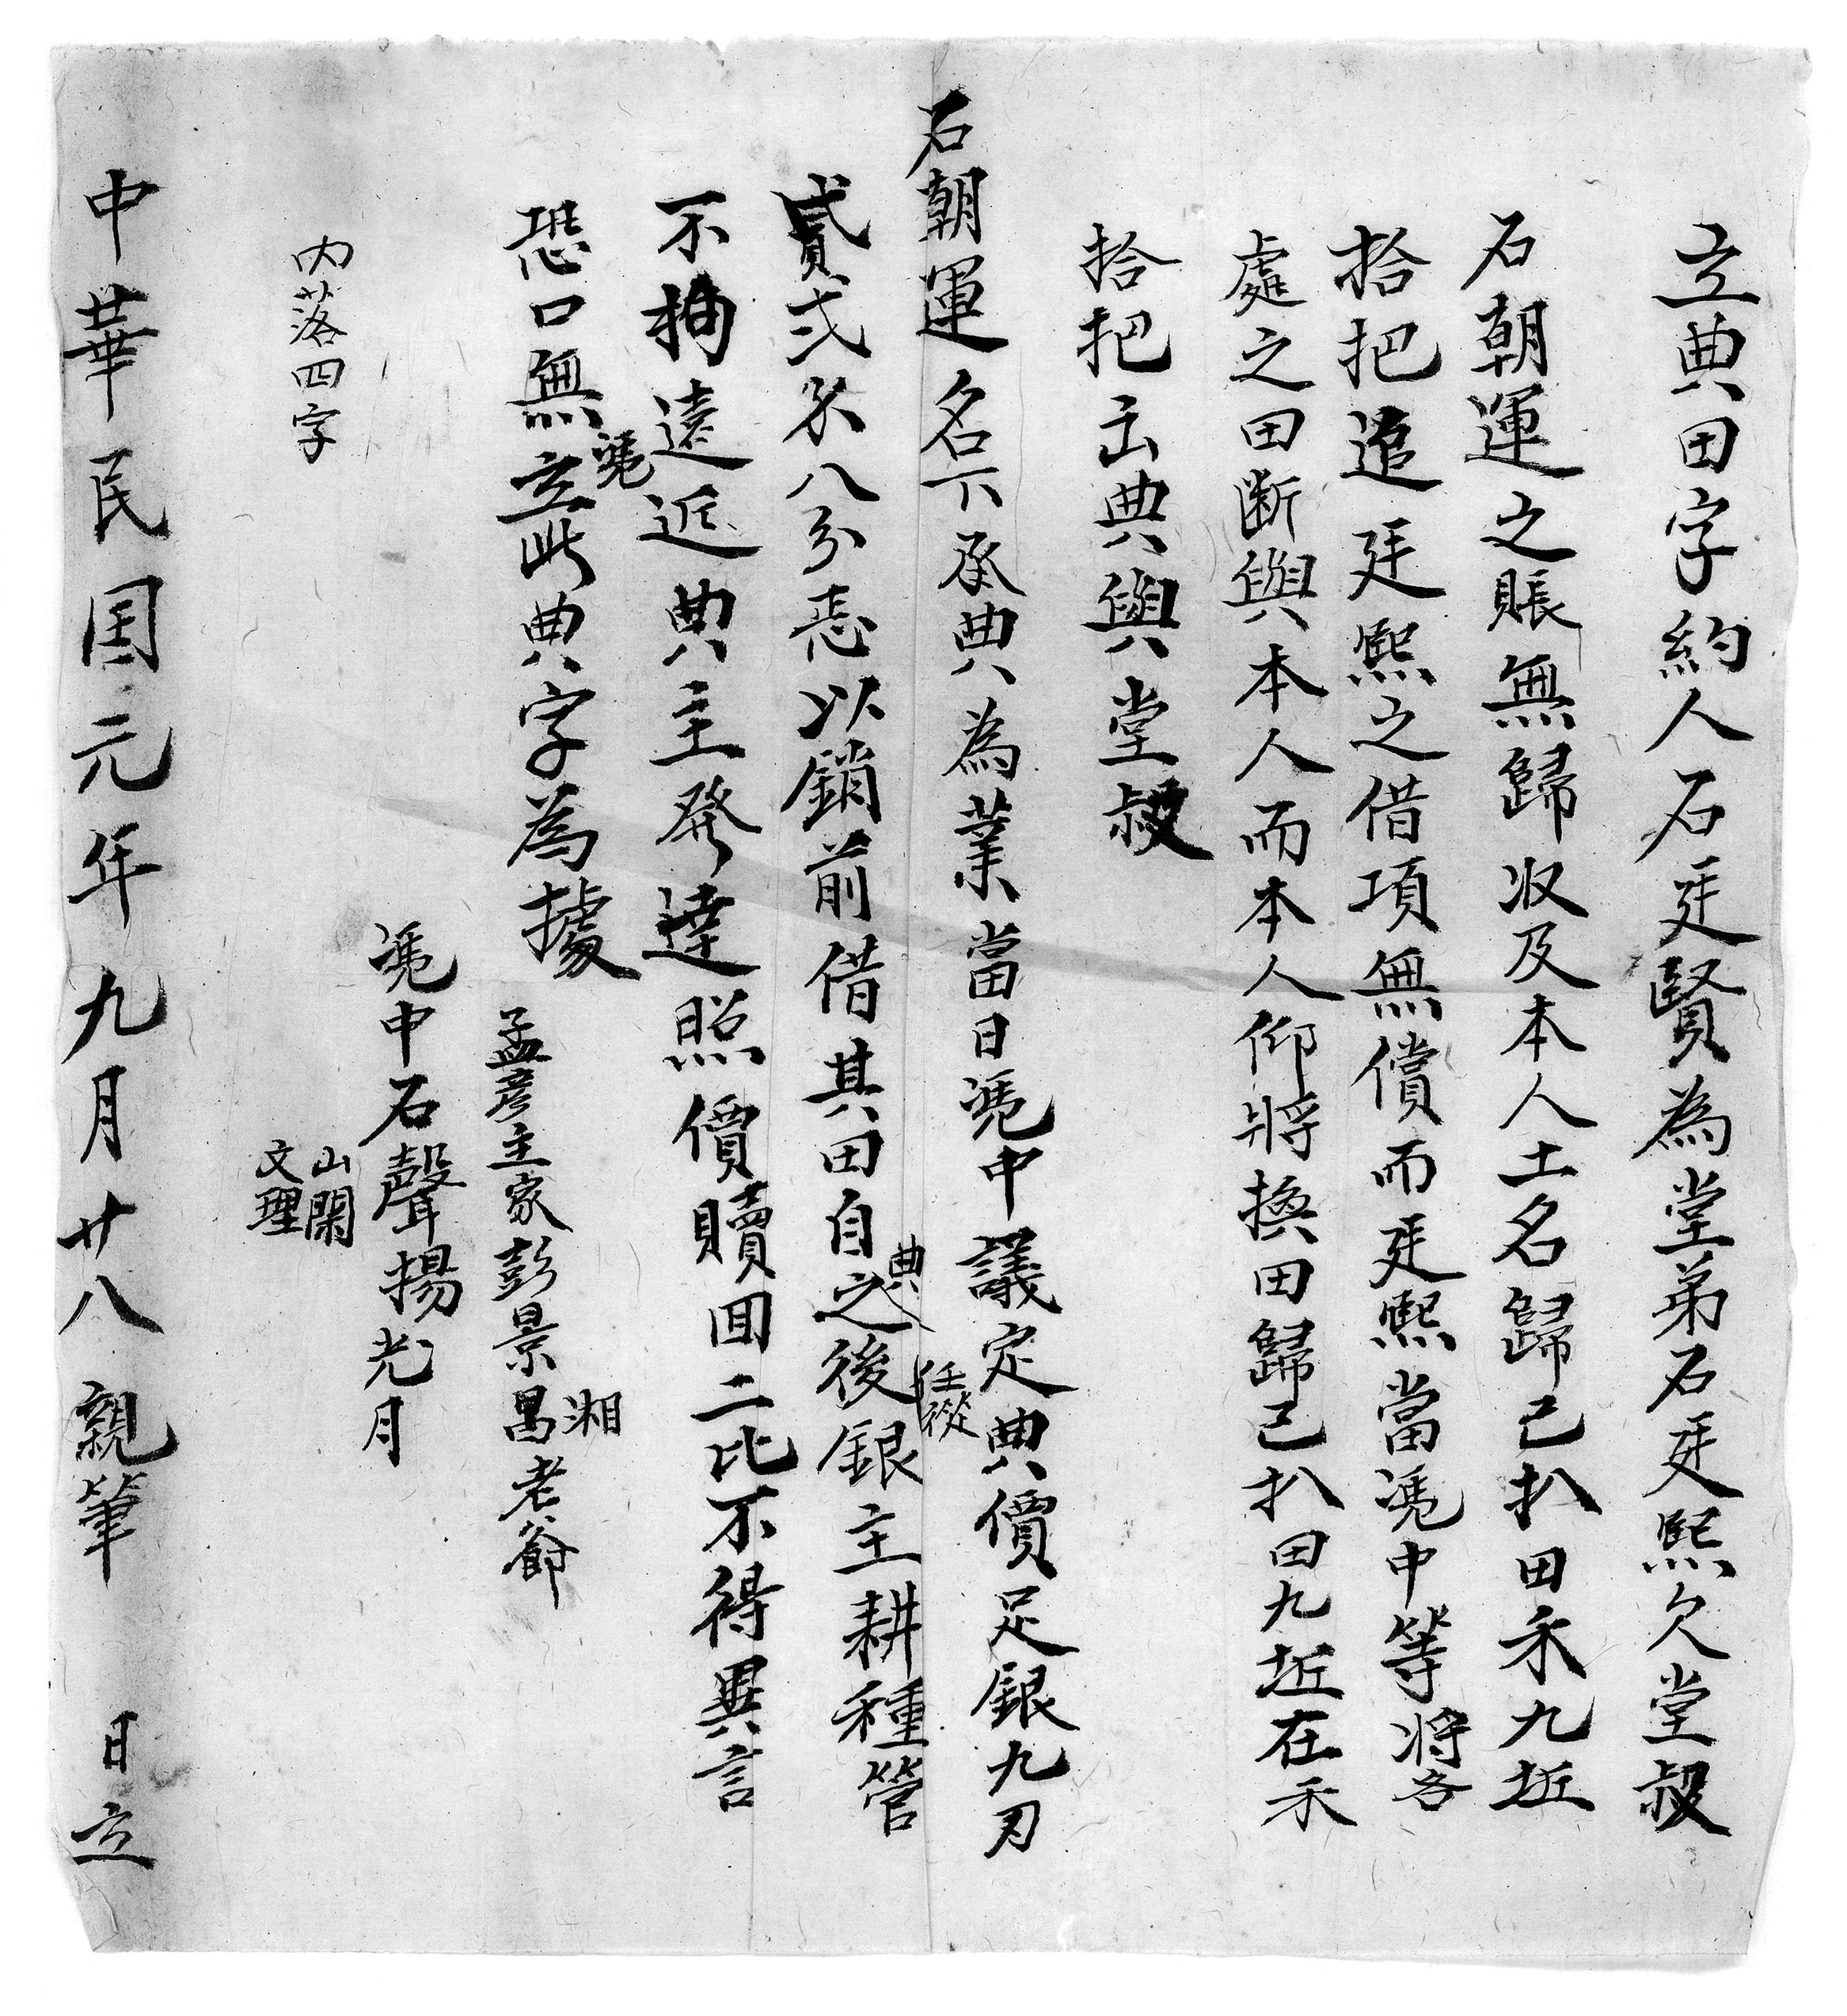 立典田字約人石廷賢為堂弟石廷熙欠堂叔
石朝運之賬無歸收及本人土名歸己扒田禾九坵
拾把追廷熙之借項無償而廷熙當凴中等將各
處之田断與本人而本人仰將換田歸己扒田九坵在禾
拾把出典與堂叔
石朝運名下承典為業當日凴中議定典價足銀九刃
貳弍錢八分悉以銷前借其田自典之後任從銀主耕種管
不拘遠近典主發達照價贖囬二比不得異言
恐口無凴立此典字為據
孟彦主家彭景昌湘老爺
凴中石聲揚光月
山閑
文理
内落四字
中華民国元年九月廿八親筆 日立